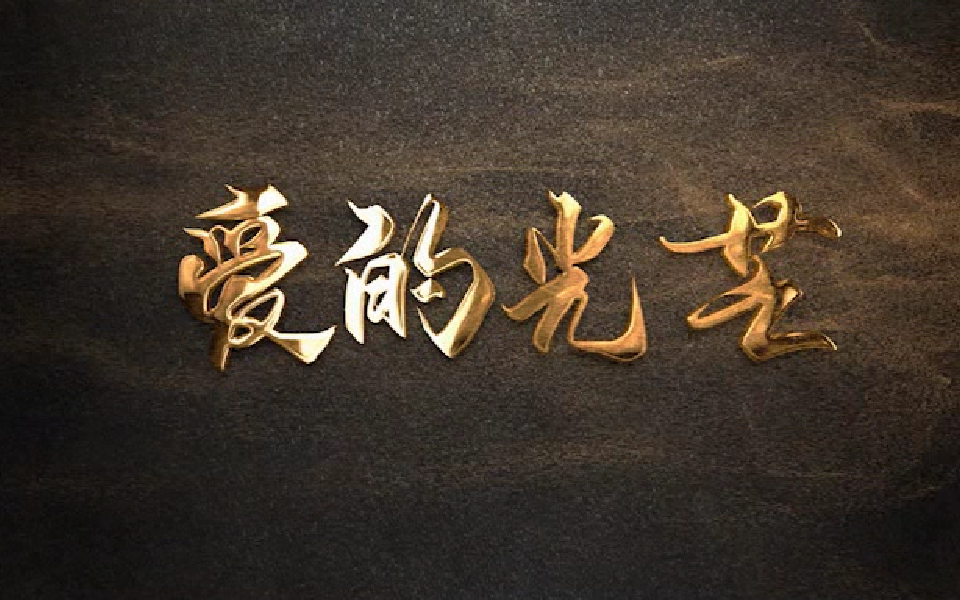 爱的光芒